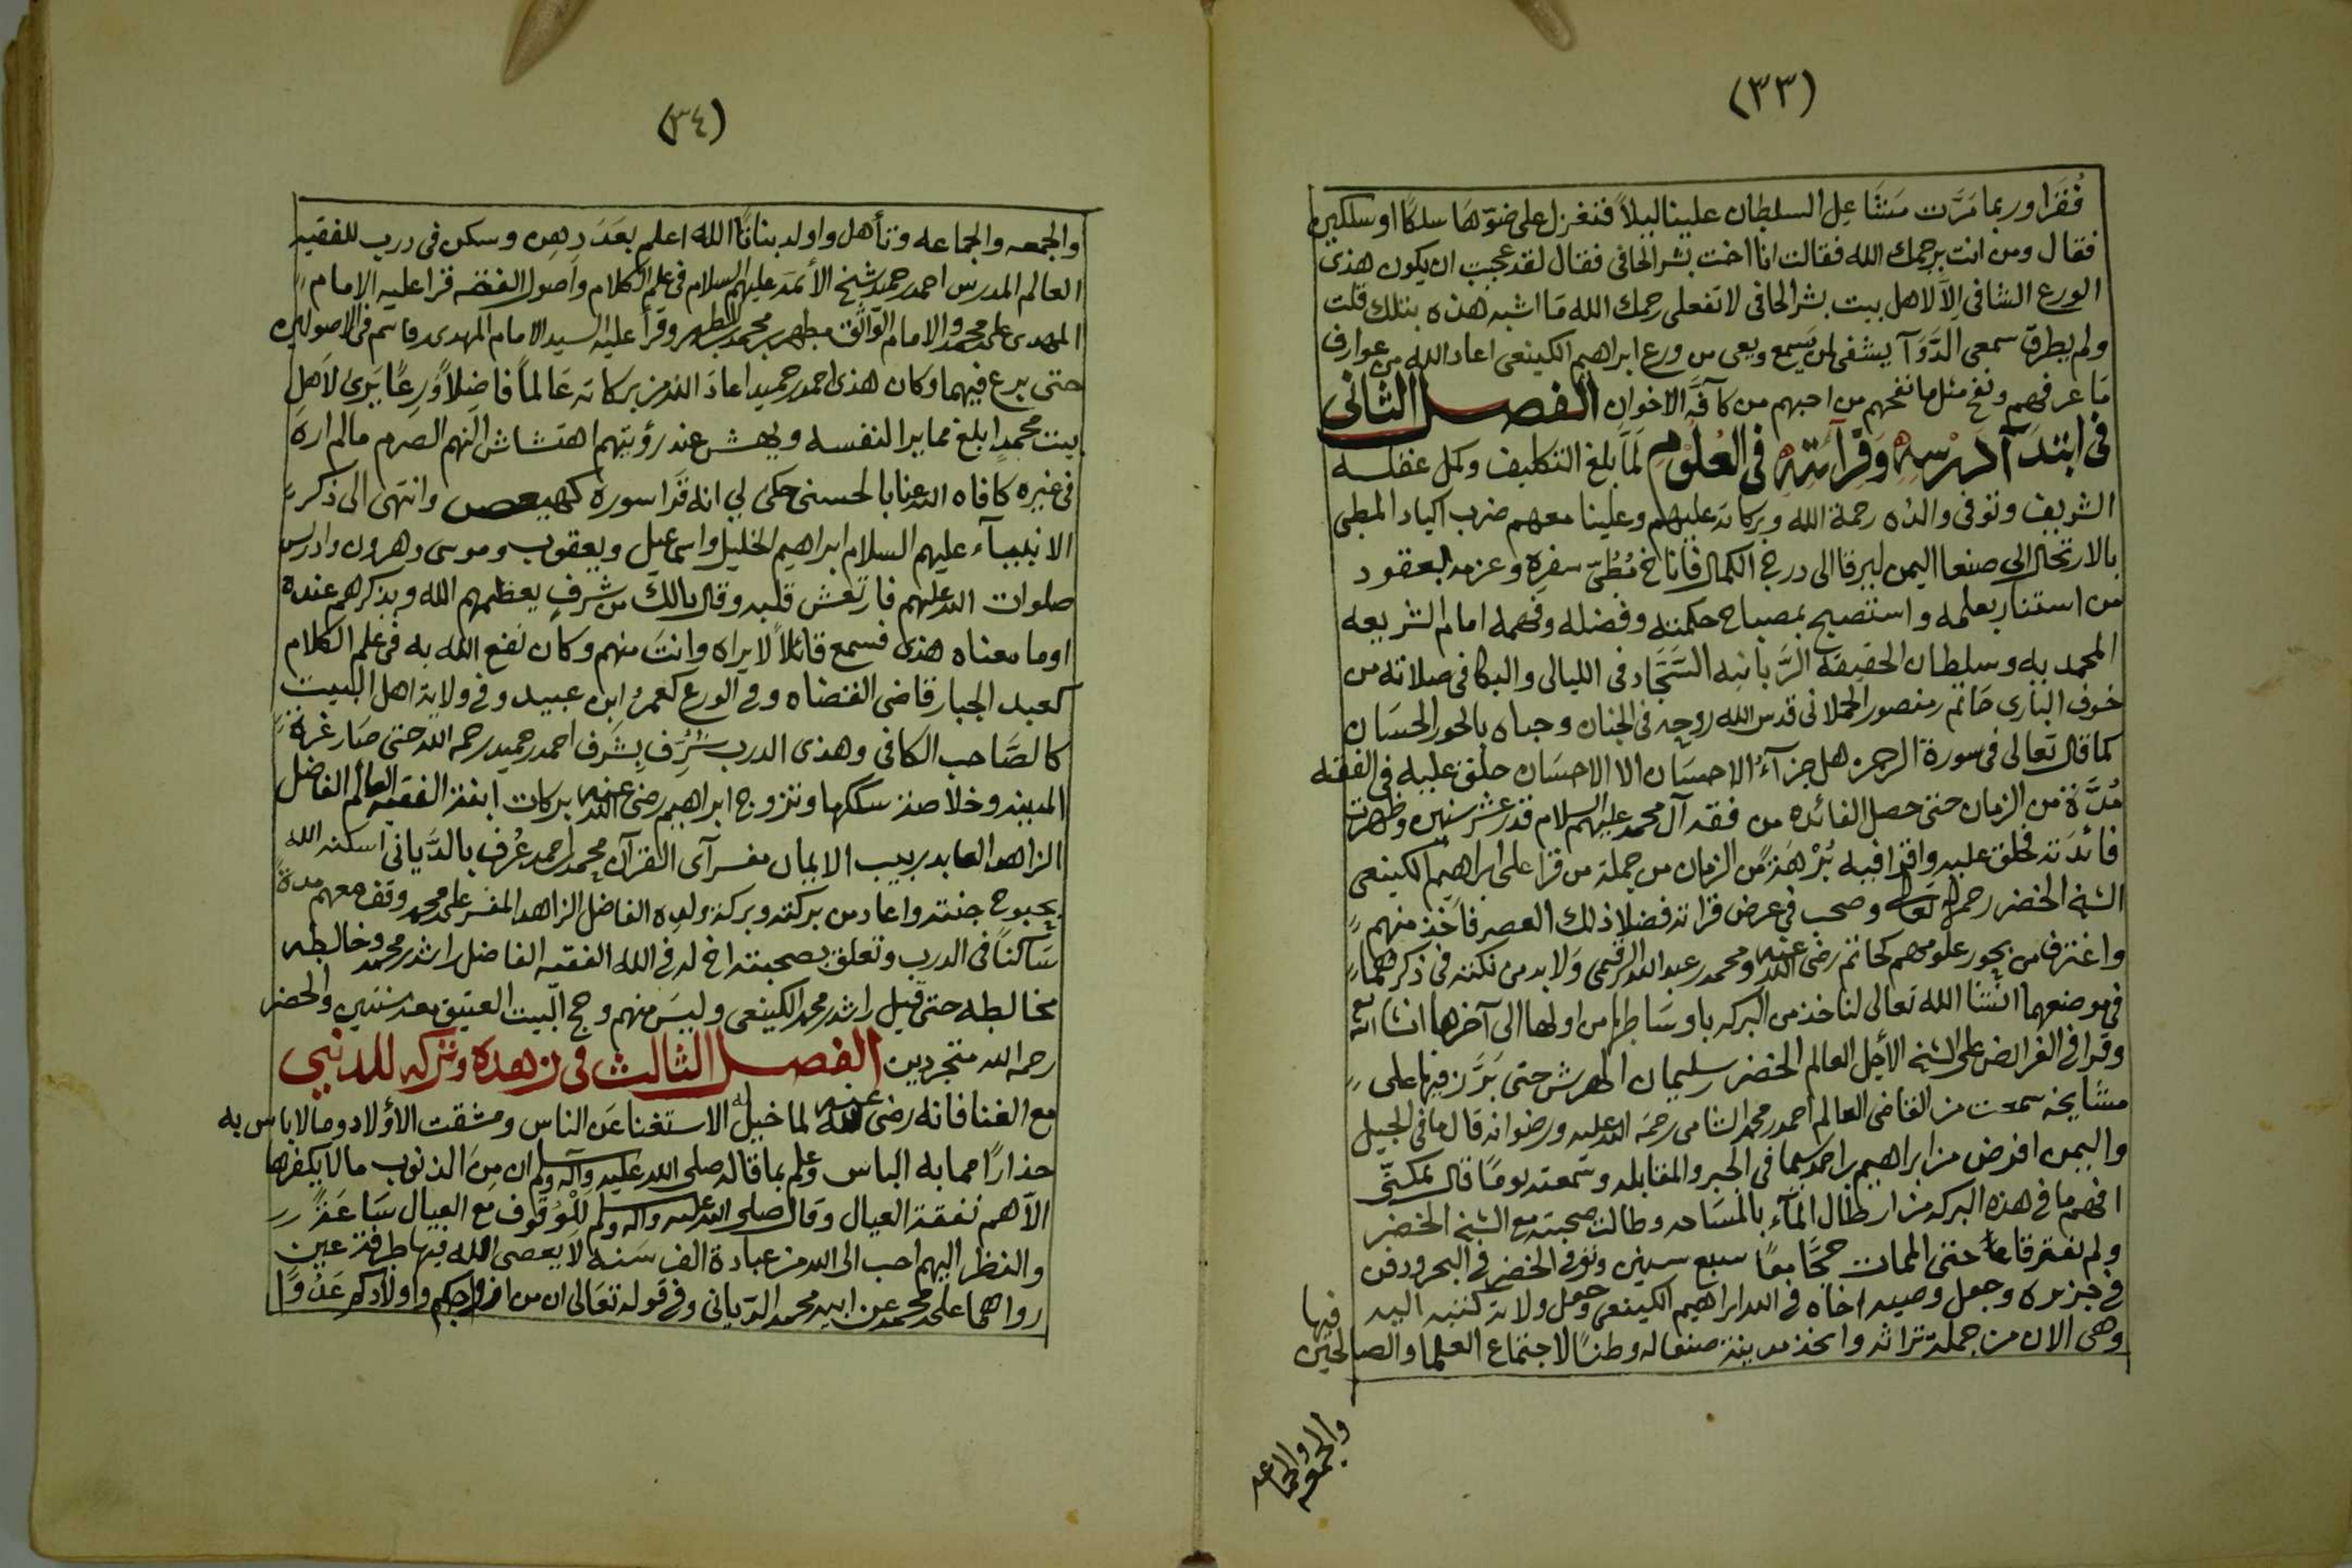 (٣٣)
فُقَرا وربما مَرَّت مَشَاعِل السلطان علينا ليلاً فنغزل على ضوّها سلكًا او سلكين
فقال ومن انت يرحمك الله فقالت انا اخت بشر الحافي فقال لقد عجبت ان يكون هذى
الورع الشافي اِلّا لاهل بيت بشر الحافي لا تفعلى رحمك الله مَا اشبه هذه بتلك قلت
ولم يطرق سمعى الدَّوَآ يشفى لمن يَسمع ويعى من ورع ابراهيم الكينعى اعاد الله من عوارف
مَا عرفهم ونفح مثل ما نفحهم من احبهم من كآفة الاخوان الفصل الثانى
فى ابتدَآ دَرْسِهِ وَقِرَآئتِهِ فى العُلُوم لَمَّا بلغ التكليف وكمل عقله
الشريف وتوفى والده رحمة الله وبركاته عليهم وعلينا معهم ضرب اكباد المطي
بالارتحال الى صنعا اليمن ليرقا الى درج الكمال فاناخ مُطِيّ سفره وعزمه لعقود
من استنار بعلمه واستصبح بمصباح حكمته وفضله وفهمه امام الشريعه
المحمديه وسلطان الحقيقه الرَّبانيه السَّجَّاد فى الليالى والبكا فى صلاته من
خوف البارى حَاتم بن منصور الحملانى قدس الله روحه فى الجنان وحباه بالحور الحسَان
كما قال تعالى فى سورة الرحمن هل جزآءُ الاحسَان الا الاحسَان حلق عليه فى الفقه
مُدَّة من الزمان حتى حصل الفائده من فقه آل محمد عليهم السلام قدر عشر سنين وظهرت
فائدته فحلق عليه واقرا فيه بُرْهَةً من الزمان من جملة من قرا على ابراهيم الكينعى
الشيخ الخضر رحمه الله تعالى وصحب فى عرض قراته فضلا ذلك العصر فاخذ منهم
واغترف من بحور علومهم كحاتم رضى الله عنه ومحمد بن عبد الله الرقيمى وَلا بد من نكته فى ذكرهما
فى موضعهما انشا الله تعالى لناخذ من البركه باوسَاطها من اولها الى آخرها انشا الله تع
وقرا فى الفرايض على الشيخ الأجل العالم الخضر بن سليمان الهرش حتى بَرَّز فيها على
مشَايخه سمعت من القاضى العالم احمد بن محمد الشامى رحمَه الله عليه ورضوانه قال ما فى الجيل
واليمن افرض من ابراهيم بن احمد سيما فى الجبر والمقابله وسمعته يومًا قال يمكننى
افهم ما فى هذه البركه من ارطال المآء بالمسَاحه وطالت صحبته مع الشيخ الخضر
ولم يفترقا حتى الممات حَجَّا معًا سبع سنين وتوفى الخضر فى البحر ودفن
فى جزيره وجعل وصيه اخاه فى الله ابراهيم الكينعى وجعل ولاية كتبه اليه فيها
وهى الان من جملة تراثه واتخذ مدينة صنعا له وطنًا لاجتماع العلما والصالحين
والجمعه
والجماعه
(٣٤)
والجمعه والجماعه وتأهل واولد بناتًا الله اعلم بعَدَدِهِن وسكن فى درب للفقيه
العالم المدرس احمد بن حميد شيخ الأئمه عليهم السلام فى علم الكلام واصول الفقه قرا عليه الامام
المهدى على بن محمد والامام الواثق مطهر بن محمد بن المطهر وقرأ عليه السيد الامام المهدى بن قاسم فى الاصولين
حتى برع فيهما وكان هذى احمد بن حميد اعادَ الله من بركاته عَالماً فاضِلاً وَرِعًا يَرى لأهل
بيت محمدٍ ابلغ مما يرا لنفسه ويهش عند رؤيتهم اهتشاش النهم الصرم مالم اره
فى غيره كافاه الله عنا بالحسنى حكى لي انه قَرا سورة كهيعص وانتهى الى ذكر
الانبيآء عليهم السلام ابراهيم الخليل واسماعيل ويعقوب وموسى وهرون وادريس
صلوات الله عليهم فارتعش قلبه وقال يا لك من شرفٍ يعظمهم الله ويذكرهم عنده
اوما معناه هذى فسمع قائلاً لا يراه وانتَ منهم وكان نفع الله به فى علم الكلام
كعبد الجبار قاضى القضاه وفى الورع كعمر ابن عبيد وفى ولاية اهل البيت
كالصَّاحب الكافى وهذى الدرب شُرِّف بِشَرف احمد بن حميد رحمه الله حتى صَار غرة
المدينه وخلاصة سككها وتزوج ابراهيم رضى الله عنه بركات ابنة الفقيه العالم الفاضل
الزاهد العابد ربيب الايمان مفسر آى القرآن محمد بن احمد عُرف بالدَّيانى اسكنه الله
بحبوح جنته واعاد من بركته وبركة ولده الفاضل الزاهد المفسر على بن محمد وقف معهم مدةً
سَاكنًا فى الدرب وتعلق بصحبته اخ له فى الله الفقيه الفاضل راشد بن محمد وخالطه
مخالطه حتى قيل راشد بن محمد الكينعى وليسَ منهم وحج البيت العتيق معه سنتين والخضر
رحمه الله متجردين الفصل الثالث فى زهده وتركه للدنيى
مع الغنا فانه رضى الله عنه لما خيل له الاستغنا عَن الناس ومشقت الأولاد وما لا باس به
حذارًا مما به الباس وعلم بما قاله صلى الله عليه وآله وسلم ان مِن الذنوب مالا يكفرها
الاّ هم نفقة العيال وقال صلى الله عليه واله وسلم لِلْوُقوف مَع العيال سَاعَةً
والنظر اليهم احب الى الله من عبادة الف سَنه لا يعصى الله فيها طرفة عين
رواهما على بن محمد عن ابيه محمد الدّيانى وفى قوله تعَالى ان من ازواجكم واولادكم عَدُوًّا